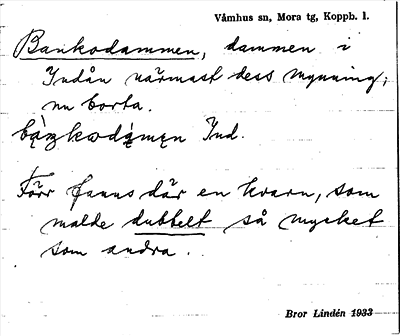 Våmhus sn, Mora tg, Koppb. l.
Bankodammen, dammen i
Indån närmast dess mynning;
nu borta.
Ind.
Förr fanns där en kvarn, som
malde dubbelt så mycket
som andra.
Bror Lindén 1933